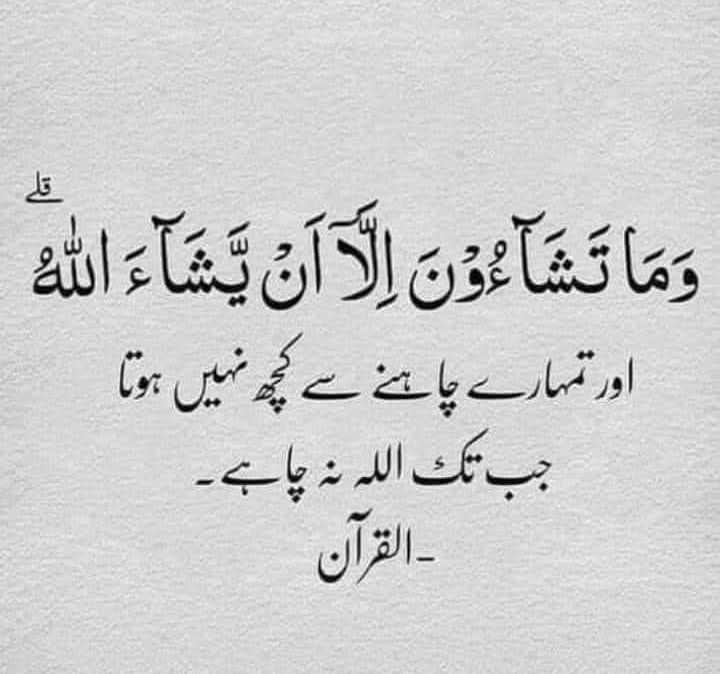 وَمَا تَشَآءُوْنَ اِلَّآ اَنْ يَّشَآءَ اللّٰهُ ۗ
اور تمہارے چاہنے سے کچھ نہیں ہوتا
جب تک اللہ نہ چاہے۔
۔القرآن